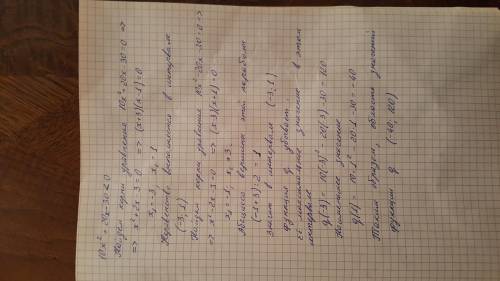 10x² + 20x - 30 < 0
Найдем корни уравнения 10x² + 20x - 30 = 0 =>
=> x² + 2x - 3 = 0 => (x+3)(x-1) = 0
x₁ = -3, x₂ = 1
Неравенство выполняется в интервале
(-3; 1)
Найдем корни уравнения 10x² - 20x - 30 = 0 =>
=> x² - 2x - 3 = 0 => (x-3)(x+1) = 0
x₁ = -1, x₂ = 3
Абсцисса вершины этой параболы
(-1+3):2 = 1
Значит в интервале (-3; 1)
функция g убывает.
Её максимальное значение в этом
интервале
g(-3) = 10(-3)² - 20(-3) - 30 = 120
Наименьшее значение
g(1) = 10·1² - 20·1 - 30 = -40
Таким образом, область значений
функции g (-40; 120)